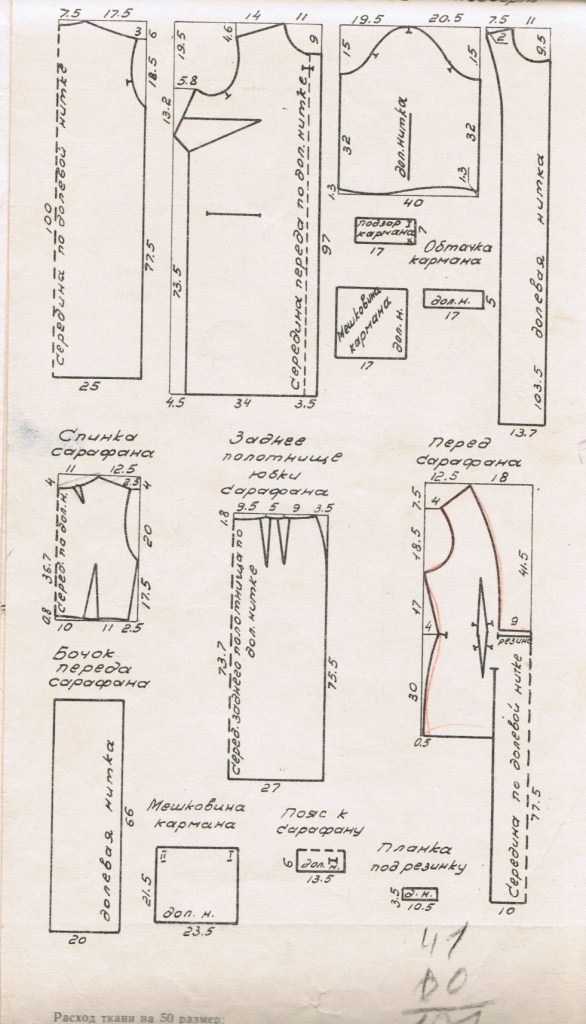 7.5 17.5
3 6
18.5
середина по долевой нитке
100
77.5
25
14 11
19.5
4.6
9
5.8
13.2
73.5
Середина переда по дол. нитке
97
4.5 34 3.5
19.5 20.5
15 15
дол. нитка
32 32
1.3
1.3
40
подзор I
кармана
7
17
Обтачка
кармана
Мешковина
кармана
дол. н.
17
дол. н.
5
17
7.5 11
9.5
103.5 долевая нитка
13.7
Спинка
сарафана
11 12.5
4
2.5 4
20
серед. по дол. н.
36.7
17.5
0.8
10 11 2.5
Заднее
полотнище
юбки
сарафана
9.5 5 9 3.5
1.8
серед. заднего полотнища по
дол. нитке
73.7
75.5
27
Перед
сарафана
12.5 18
7.5
4
18.5
41.5
17
4
9
резина
30
0.5
Середина по долевой нитке
77.5
10
Бочок
переда
сарафана
долевая нитка
66
20
Мешковина
кармана
II I
21.5
дол. н.
23.5
Пояс к
сарафану
6
дол. н.
13.5
Планка
под резинку
3.5
д. н.
10.5
41
Расход ткани на 50 размер: